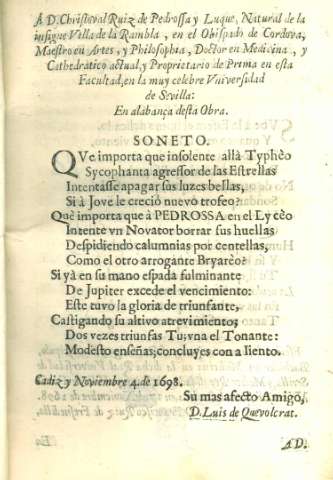 A D. Christoval Ruiz de Pedrossa y Luque, Natural de la
insigne Villa de la Rambla, en el Obispado de Cordova,
Maestro en Artes, y Philosophia, Doctor en Medicina, y
Cathedratico actual, y Proprietario de Prima en esta
Facultad, en la muy celebre Vniversidad
de Sevilla:
En alabança desta Obra.
SONETO.
QVe importa que insolente allà Typhèo
Sycophanta agressor de las Estrellas
Intentasse apagar sus luzes bellas,
Si à Jove le creciò nuevo trofeo?
Què importa que à PEDROSSA en el Lycèo
Intente vn Novator borrar sus huellas
Despidiendo calumnias por centellas,
Como el otro arrogante Bryarèo?
Si yà en su mano espada fulminante
De Jupiter excede el vencimiento:
Este tuvo la gloria de triunfante,
Castigando su altivo atrevimiento;
Dos vezes triunfas Tu, vna el Tonante:
Modesto enseñas; concluyes con a liento.
Cadiz y Noviembre 4. de 1698.
Su mas afecto Amigo,
D. Luis de Quevolcrat.
AD.